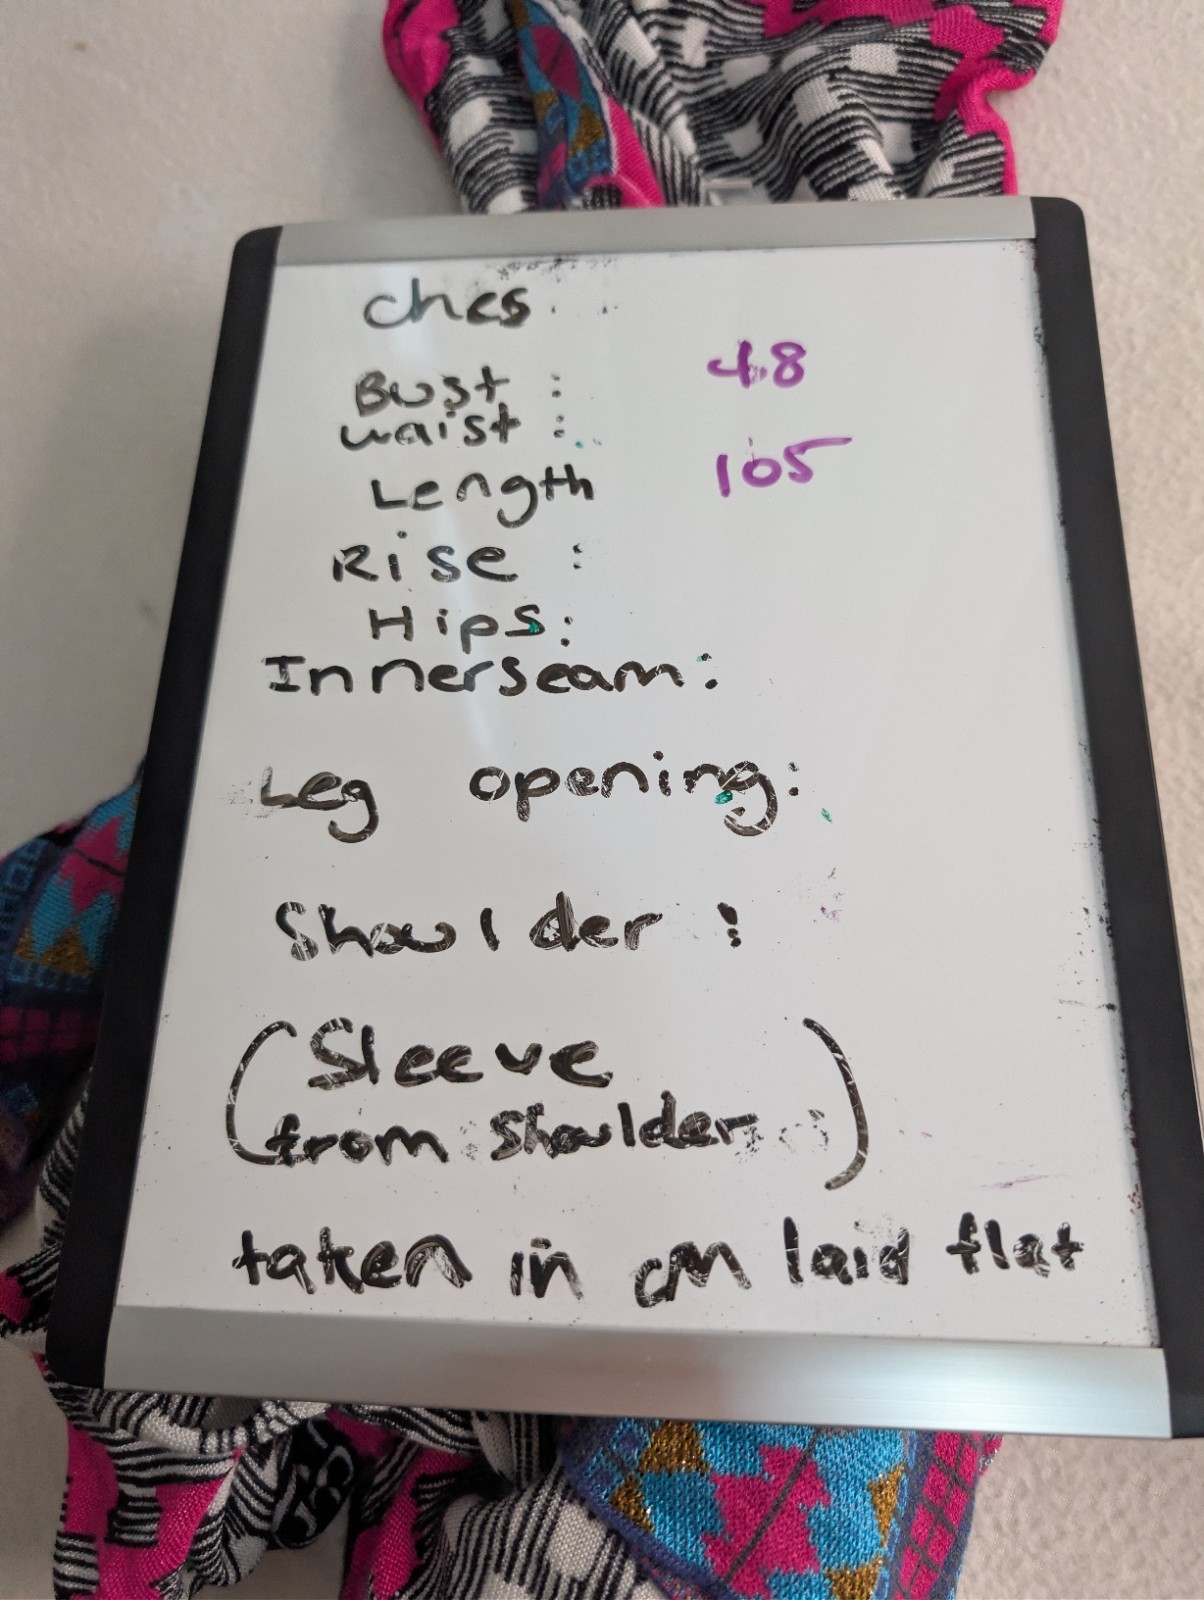 ches
Bust : 48
waist :
Length 105
Rise :
Hips:
Innerseam:
Leg opening:
Shoulder :
(Sleeve
from shoulder)
taken in cm laid flat